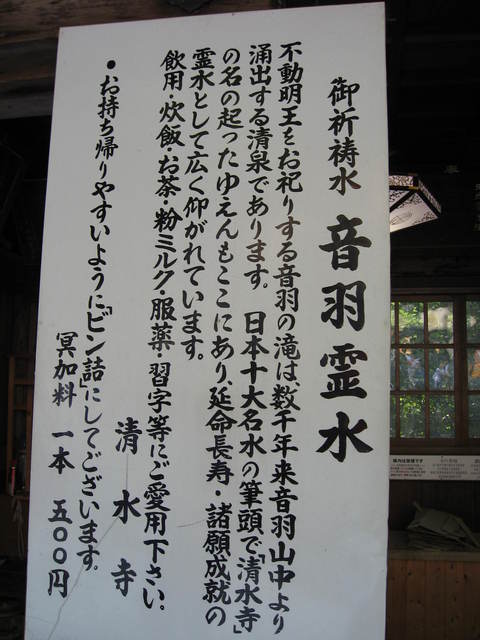 御祈祷水 音羽霊水
不動明王をお祀りする音羽の滝は、数千年来音羽山中より
涌出する清泉であります。日本十大名水の筆頭で「清水寺」
の名の起ったゆえんもここにあり、延命長寿・諸願成就の
霊水として広く仰がれています。
飲用・炊飯・お茶・粉ミルク・服薬・習字等にご愛用下さい。
清水寺
●お持ち帰りやすいように「ビン詰」にしてございます。
冥加料 一本 五〇〇円